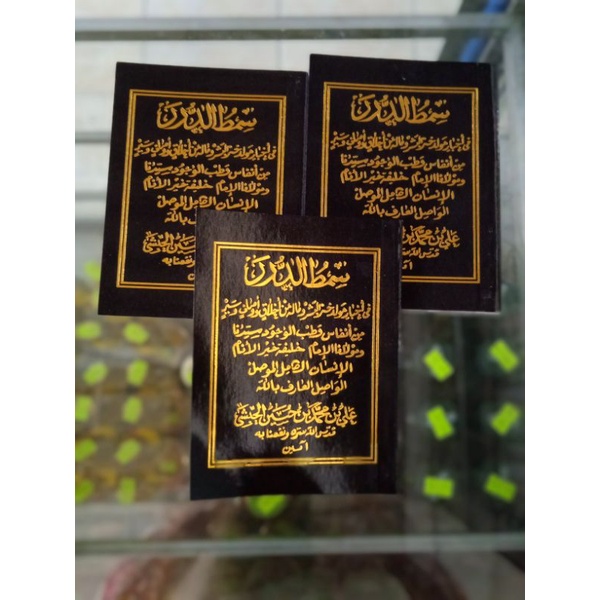 سمط الدرر
في أخبار مولد خير البشر وماله من أخلاق وأوصاف وسير
من أنفاس قطب الوجود سيدنا
ومولانا الإمام خليفة خير الأنام
الإنسان الكامل الموصل
الواصل العارف بالله
علي بن محمد بن حسين الحبشي
قدس الله سره ونفعنا به
آمين
سمط الدرر
في أخبار مولد خير البشر وماله من أخلاق وأوصاف وسير
من أنفاس قطب الوجود سيدنا
ومولانا الإمام خليفة خير الأنام
الإنسان الكامل الموصل
ف بالله
حسين الحبشي
ونفعنا به
سمط الدرر
في أخبار مولد خير البشر وماله من أخلاق وأوصاف وسير
من أنفاس قطب الوجود سيدنا
ومولانا الإمام خليفة خير الأنام
الإنسان الكامل الموصل
الواصل العارف بالله
علي بن محمد بن
قدس الله سره
آمين